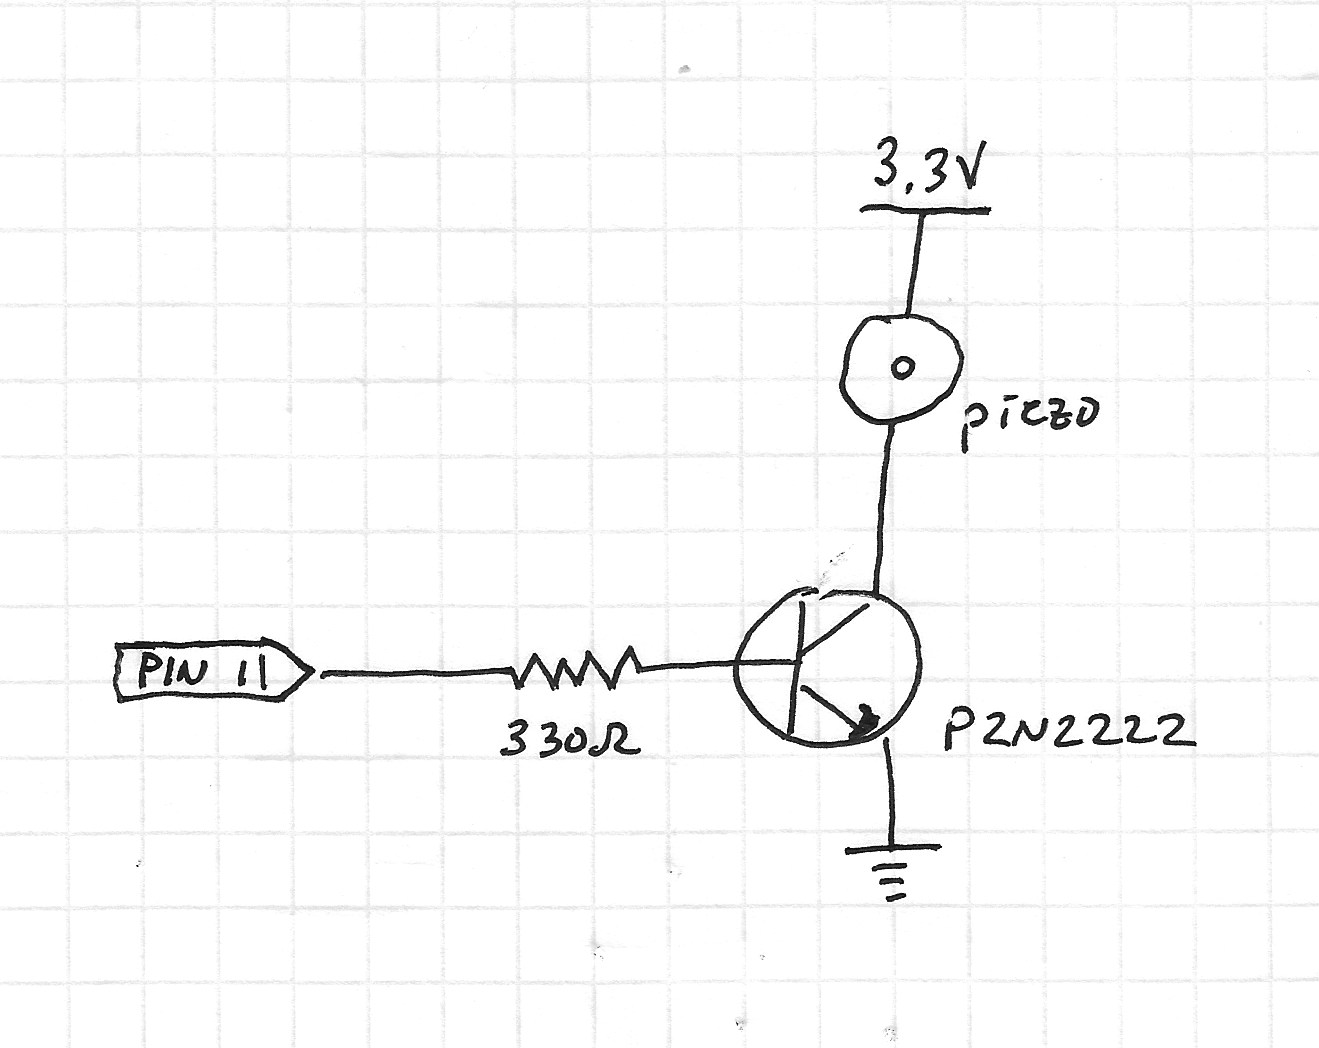 3.3V
piezo
PIN 11
330Ω
P2N2222